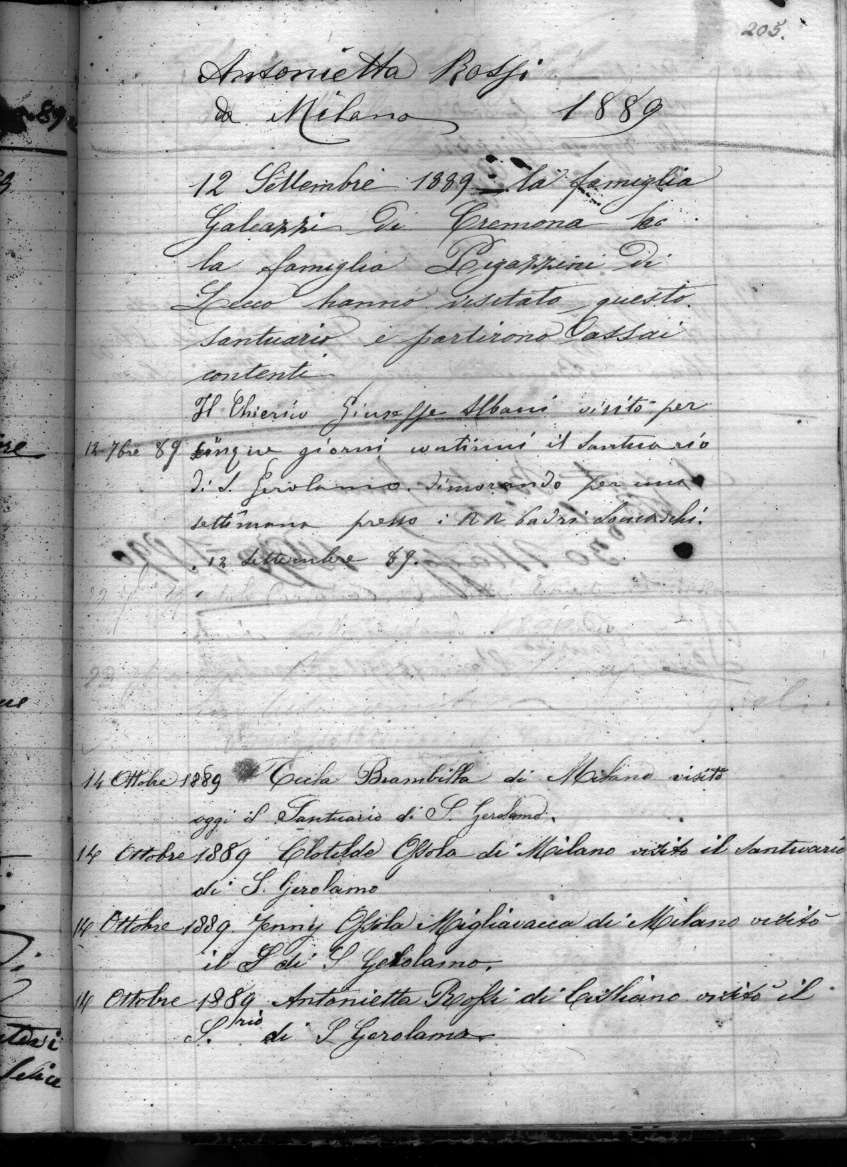 205.
Antonietta Rossi
da Milano 1889
12 Settembre 1889 = la famiglia
Galeazzi di Cremona
la famiglia Pigazzini di
Lecco hanno visitato questo
santuario e partirono assai
contenti
Il Chierico Giuseppe Albani visitò per
12 7bre 89 cinque giorni continui il Santuario
di S. Gerolamo, dimorando per una
settimana presso i RR Padri Somaschi.
12 Settembre 89.
14 Ottobre 1889 Tecla Brambilla di Milano visitò
oggi il Santuario di S. Gerolamo.
14 Ottobre 1889 Clotilde Ossola di Milano visitò il santuario
di S. Gerolamo
14 Ottobre 1889. Jenny Ossola Migliavacca di Milano visitò
il S di S Gerolamo.
14 Ottobre 1889 Antonietta Rossi di visitò il
S.rio di S Gerolamo.